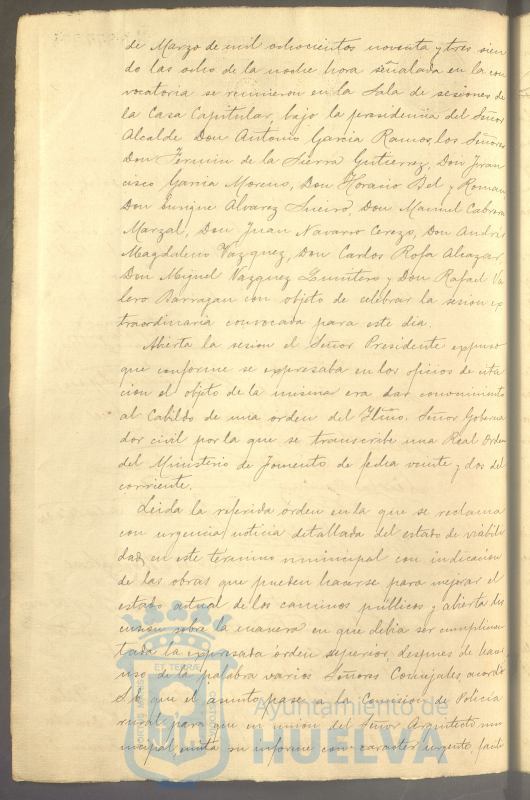 de Marzo de mil ochocientos noventa y tres sien
do las ocho de la noche hora señalada en la con
vocatoria se reunieron en la Sala de sesiones de
la Casa Capitular, bajo la presidencia del Señor
Alcalde Don Antonio Garcia Ramos, los Señores
Don Fermin de la Sierra Gutierrez, Don Fran
cisco Garcia Moreno, Don Horacio Bel y Roman
Don Enrique Alvarez Don Manuel Cabrera
Marzal, Don Juan Navarro Cerezo, Don Andrés
Magdaleno Vazquez, Don Carlos Rofa Alcazar,
Don Miguel Vazquez y Don Rafael Va
lero Barragan con objeto de celebrar la sesion ex
traordinaria convocada para este dia.
Abierta la sesion el Señor Presidente expuso
que conforme se expresaba en los oficios de cita
cion el objeto de la misma era dar conocimiento
al Cabildo de una orden del Iltmo. Señor Goberna
dor civil por la que se transcribe una Real Orden
del Ministerio de Fomento de fecha veinte y dos del
corriente.
Leida la referida órden en la que se reclama
con urgencia noticia detallada del estado de viabili
dad en este término municipal con indicacion
de las obras que pueden hacerse para mejorar el
estado actual de los caminos públicos y abierta dis
cusion sobre la manera en que debia ser cumplimen
tada la expresada órden superior, despues de hacer
uso de la palabra varios Señores Concejales, acordó
S. E. que el asunto pase a la Comision de Policía
rural para que en union del Señor Arquitecto mu
nicipal, emita su informe con caracter urgente, facili
Ayuntamiento de
HUELVA